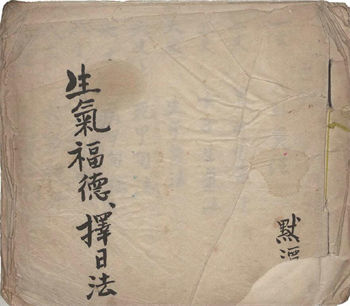 生氣福德、擇日法
默